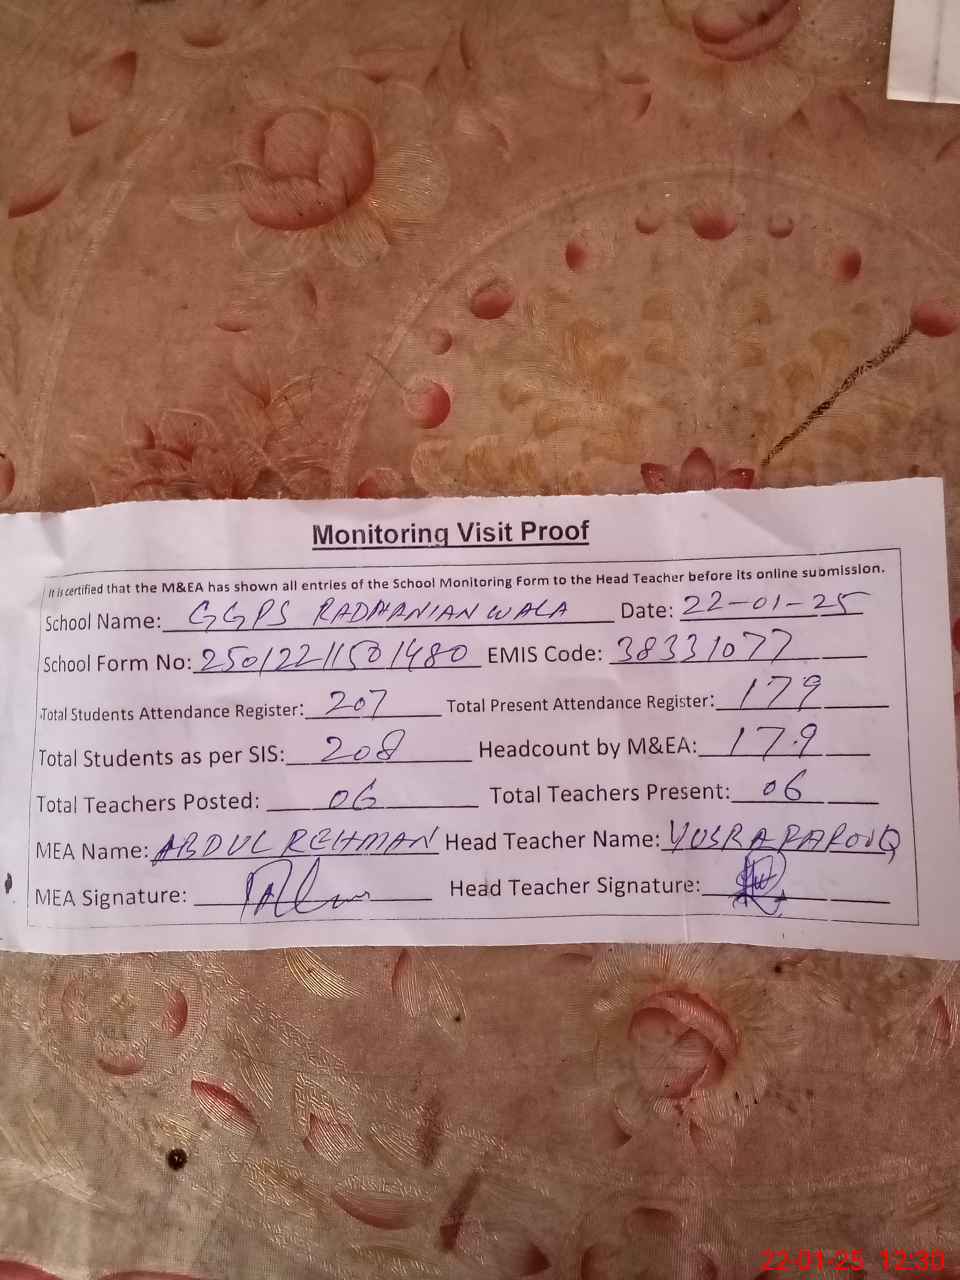 Monitoring Visit Proof
It is certified that the M&EA has shown all entries of the School Monitoring Form to the Head Teacher before its online submission.
School Name: GGPS RADHANIAN WALA Date: 22-01-25
School Form No: 25012211501480 EMIS Code: 38331077
Total Students Attendance Register: 207 Total Present Attendance Register: 179
Total Students as per SIS: 208 Headcount by M&EA: 179
Total Teachers Posted: 06 Total Teachers Present: 06
MEA Name: ABDUL REHMAN Head Teacher Name: YUSRA FAROUQ
MEA Signature: Head Teacher Signature:
22-01-25 12:30